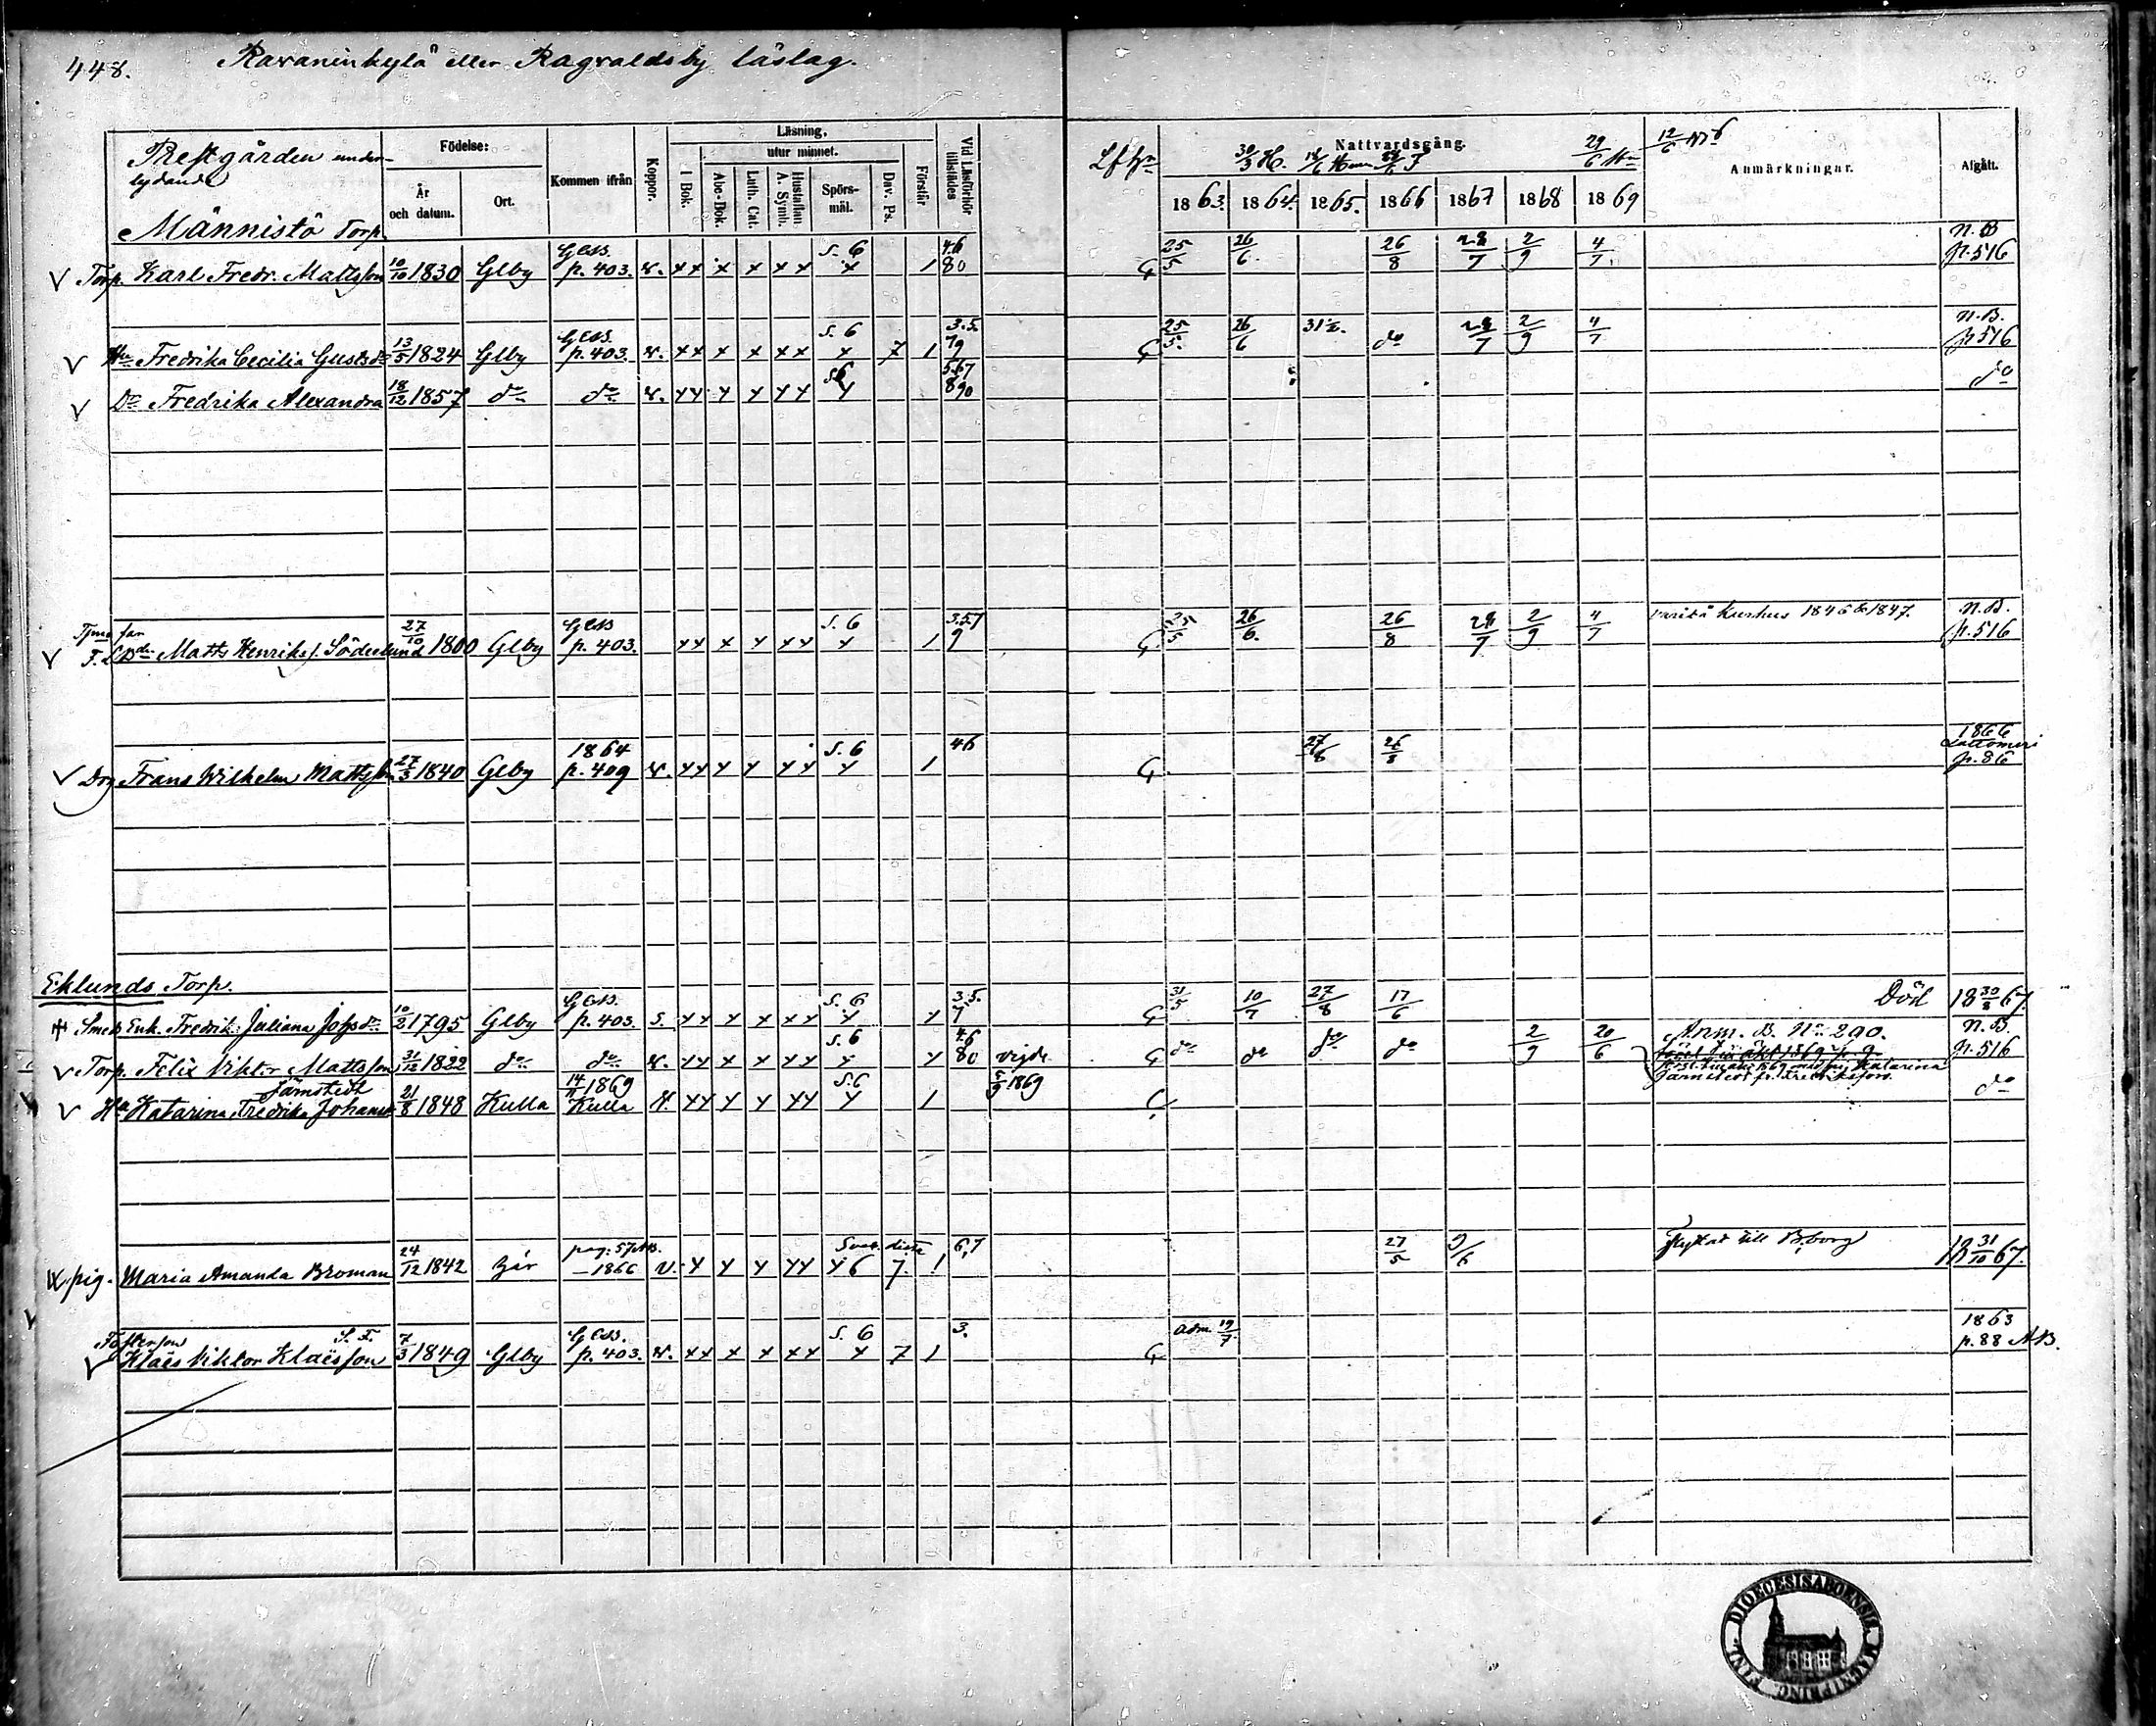 448. Ravaninkylä eller Ragvaldsby läslag.
Prestgården under-
lydande
Männistö Torp.
Födelse:
År
och datum.
Ort.
Kommen ifrån
Koppor.
Läsning,
utur minnet.
I Bok.
Abc-Bok
Luth. Cat.
Hustaflan
A. Symb.
Spörs-
mål.
Dav. Ps.
Förstår
Vid Läsförhör
tillstädes
Nattvardsgång.
29/6 12/6
1863. 1864. 1865. 1866 1867 1868 1869
Anmärkningar.
Afgått.
Torp. Karl Fredr. Mattsson 10/10 1830 Glby GCB. p. 403. v. x x x x x x S. 6 x 1 46 80 G 25/5 26/6 26/8 28/7 2/9 4/7 n. B p. 516
Hu Fredrika Cecilia Gustsdr 13/5 1824 Glby GCB. p. 403. v. x x x x x x S. 6 x 7 1 3.5. 79 G 25/5 26/6 do 28/7 2/9 4/7 n. B. p. 516
Dr Fredrika Alexandra 18/12 1857 do do v. x x x x x x S6 x 5.67 890 do
F. Matts Henriks. Söderlund 27/10 1800 Glby GCB p. 403. x x x x x x S. 6 x 1 3.5.7 9 G 25/5 26/6. 26/8 28/7 2/9 4/7 1846 & 1847. n. B. p. 516
Drg Frans Wilhelm Mattsson 27/3 1840 Glby 1864 p. 409 v. x x x x x x S. 6 x 1 46 G 27/8 26/8 1866 Lattomeri p. 86
Eklunds Torp.
Smeds Enk. Fredrik. Juliana Jossdr 10/2 1795 Glby GCB. p. 403. S. x x x x x x S. 6 x x 3.5. 7 G 31/5 10/7 27/8 17/6 Död 18 30/8 67.
Torp. Felix Viktor Mattsson 31/12 1822 do do v. x x x x x x S. 6 x x 46 80 vigde G do do do do 2/9 20/6 Anm. B. No 290. n. B. p. 516
Katarina
Järnstedt
Hu Katarina Fredrika Johansdr 21/8 1848 Kulla 14/11 1869 Kulla v. x x x x x x S. 6 x 1 5/9 1869 G do
pig. Maria Amanda Broman 24/12 1842 Bjr pag. 57 AB. 1866 v. x x x x x x 6 7 1 6,7 27/5 9/6 flyttat till B:borg 18 31/10 67.
Fosterson
Klaës Viktor Klaësson S. F. 7/3 1849 Glby GCB. p. 403. v. x x x x x x S. 6 x 7 1 3. G adm. 19/7. 1863 p. 88 AB.
DIOECESIS ABOENSIS MAGNI PRINC. FINL.